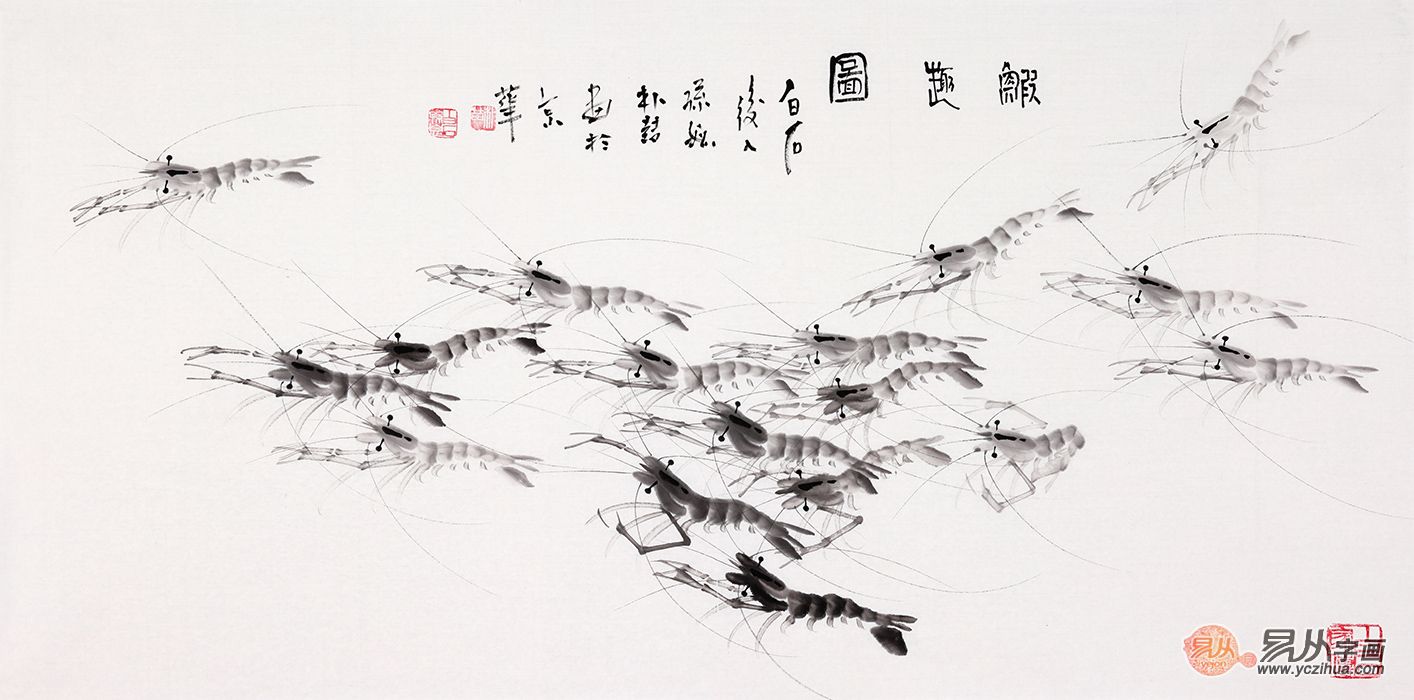 鰕趣圖
白石
後人
孫媳
朴慧
畫於
京
華
易从字画
www.yczihua.com